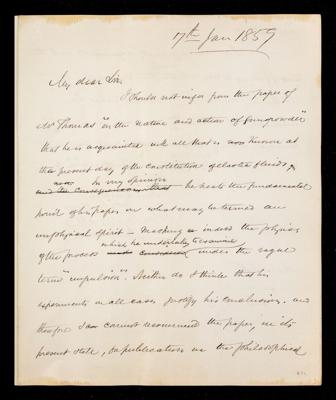 17th Jan 1859
My dear Sir
I should not infer from the paper of
Mr Thomas "on the nature and action of fired gunpowder"
that he is acquainted with all that is now known at
the present day of the constitution of elastic fluids,
now in my opinion
he treats the fundamental
point of his paper in what may be termed an
unphysical spirit – masking indeed the physics
which he undertakes to examine
of the process under the vague
term "impulsion". Neither do I think that his
experiments in all cases justify his conclusions. and
therefore I cannot recommend the paper, in its
present state, for publication in the Philosophical